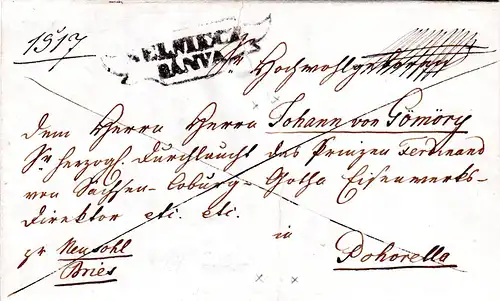 1517
SELMECZ
BÁNYA
Sr Hochwohlgeboren
dem Herrn Herrn Johann von Gömöry
Sr herzogl. Durchlaucht des Prinzen Ferdinand
von Sachsen-Coburg-Gotha Eisenwerks-
Direktor etc. etc.
pr Neusohl
Bries
in
Pohorella